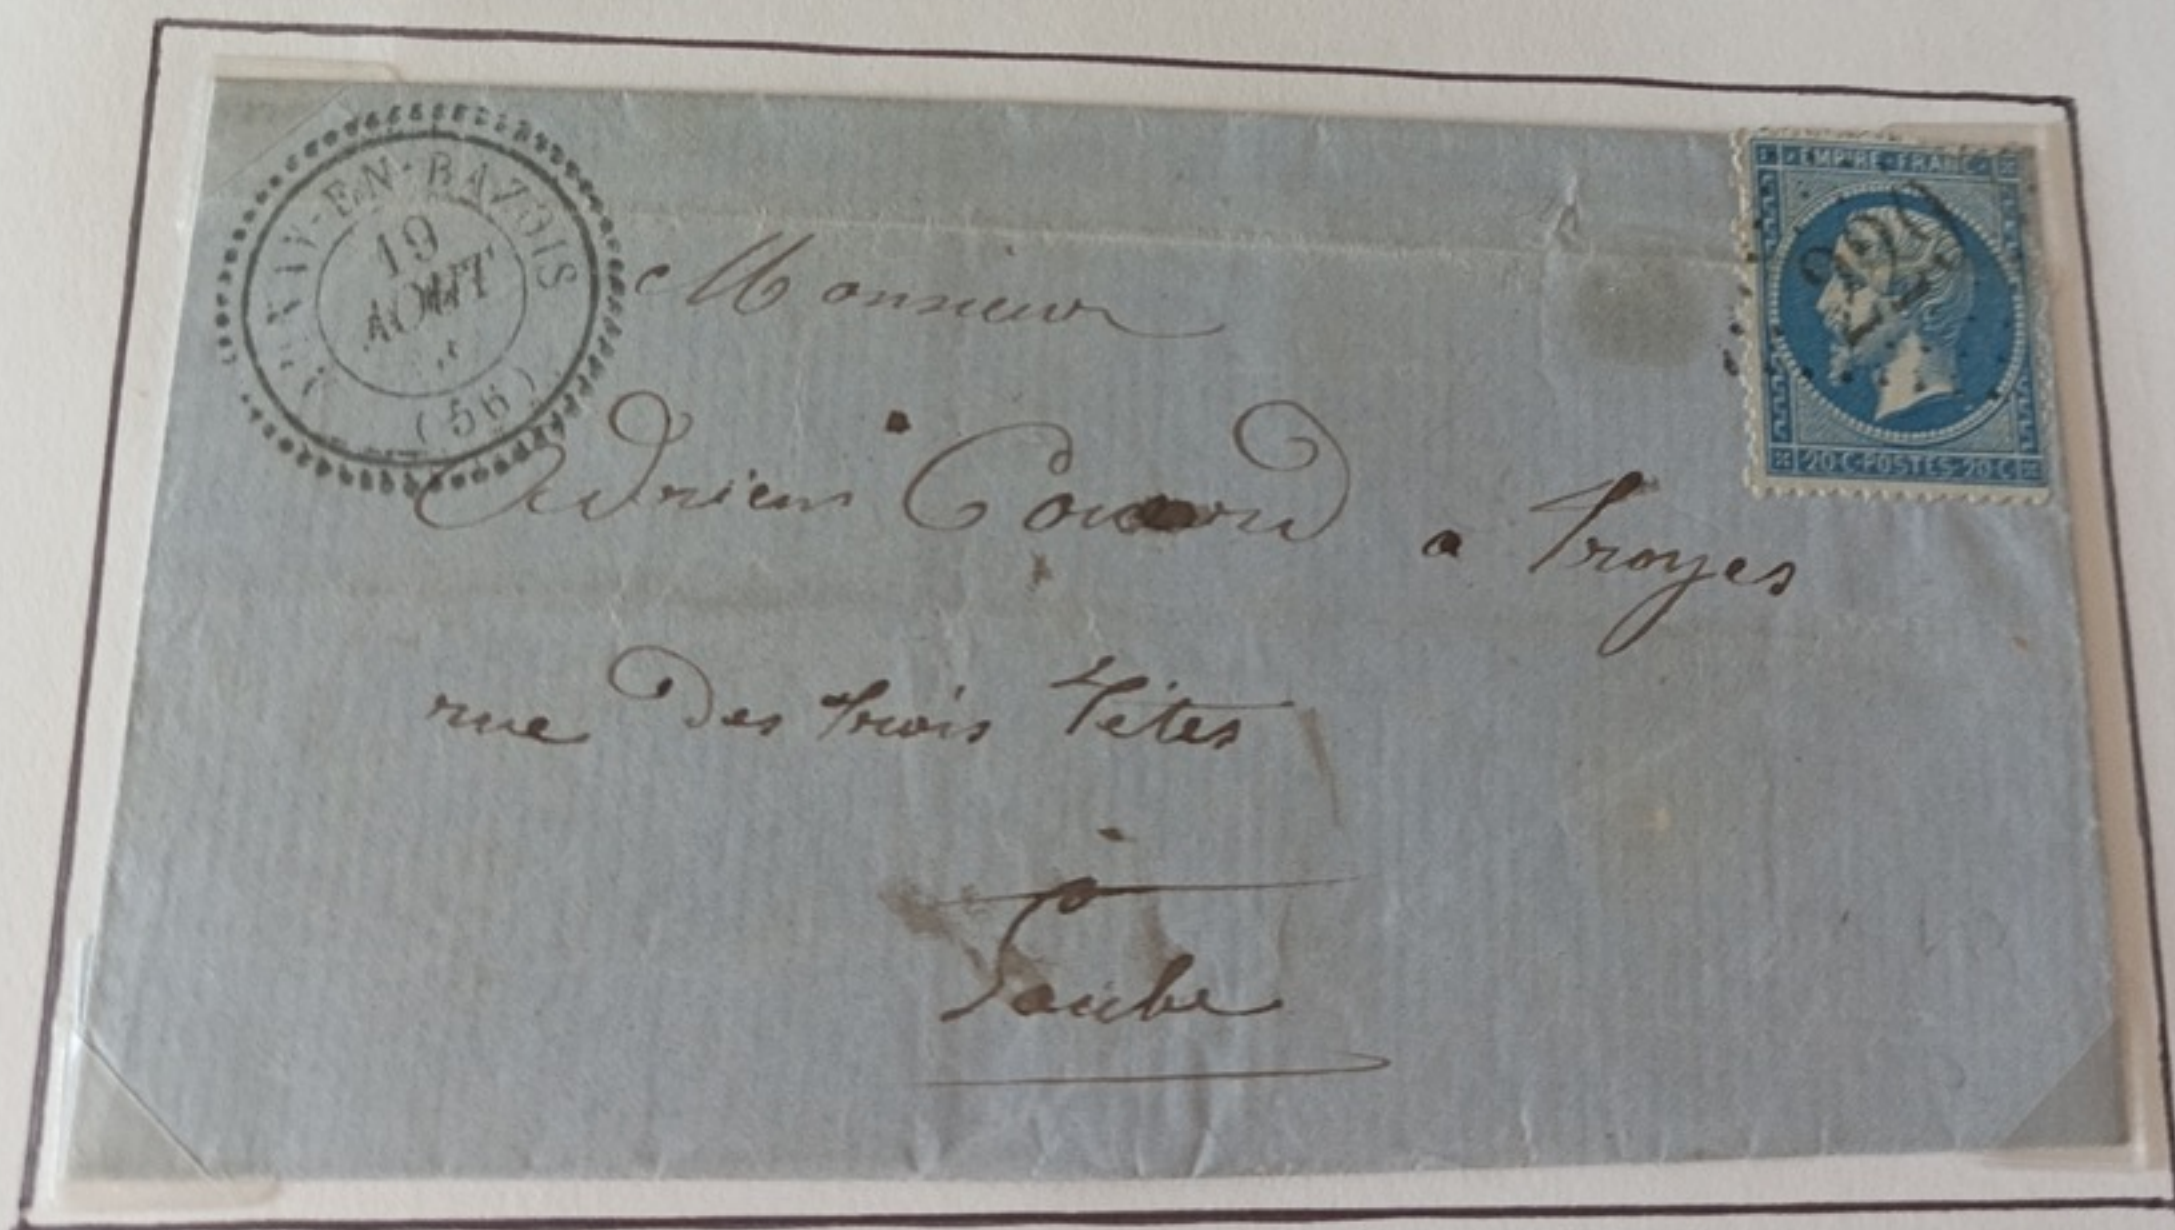 EN-BAZOIS
19
AOUT
(56)
EMPIRE FRANC
20 C POSTES 20 C
Monsieur
Adrien
a Troyes
rue des trois têtes
L'aube